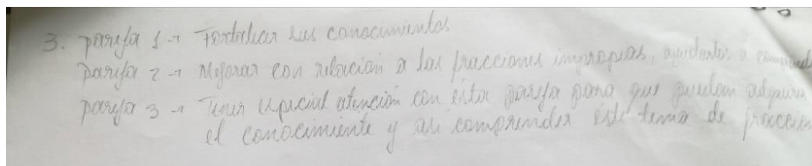 3. pareja 1 → Fortalecer sus conocimientos
pareja 2 → Mejorar con relación a las fracciones impropias, ayudarlos a
pareja 3 → Tener especial atención con esta pareja para que puedan adquirir
el conocimiento y asi comprender este tema de